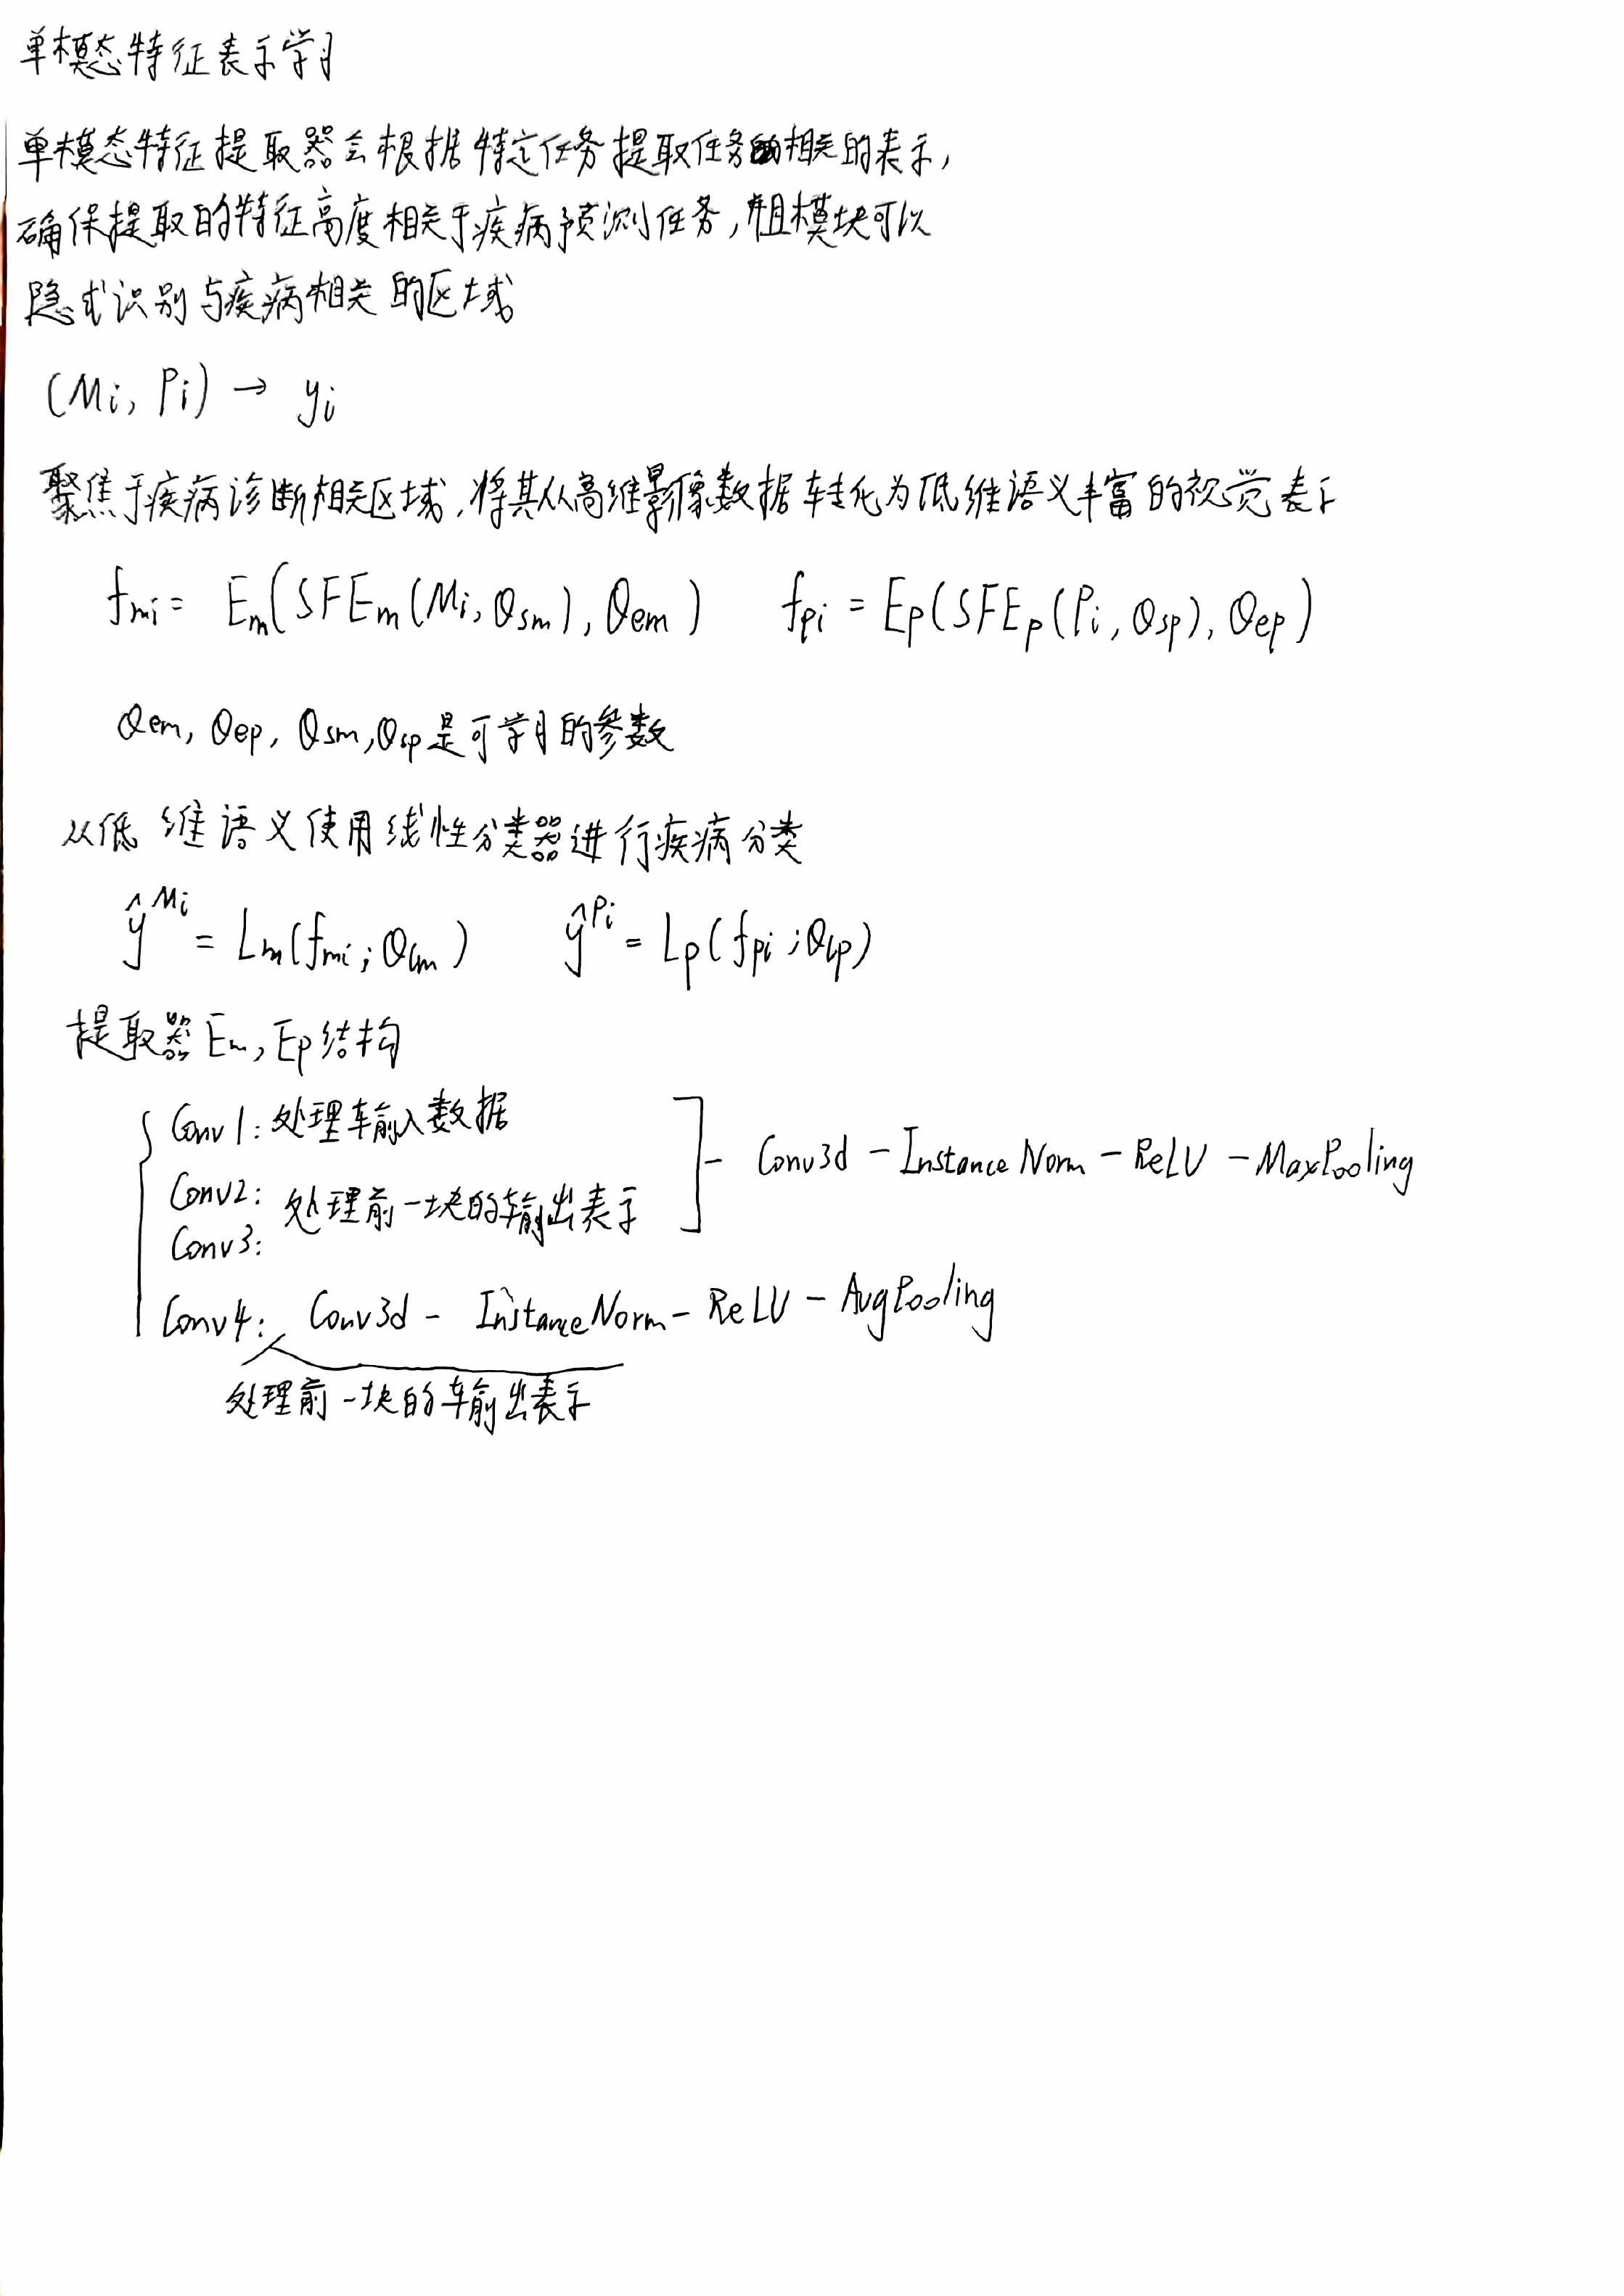 单模态特征表示学习
单模态特征提取器会根据特定任务提取任务相关的表示,
确保提取的特征高度相关于疾病预测任务,粗模块可以
隐式识别与疾病相关的区域
(Mi, Pi) → yi
聚焦于疾病诊断相关区域,将其从高维影像数据转化为低维语义丰富的视觉表示
fmi = Em(SFEm(Mi, θsm), θem) fpi = Ep(SFEp(Pi, θsp), θep)
θem, θep, θsm, θsp是可学习的参数
从低维语义使用线性分类器进行疾病分类
ŷ^Mi = Lm(fmi; θlm) ŷ^Pi = Lp(fpi; θlp)
提取器Em, Ep结构
Conv1: 处理输入数据
Conv2: 处理前一块的输出表示
Conv3:
- Conv3d - InstanceNorm - ReLU - MaxPooling
Conv4: Conv3d - InstanceNorm - ReLU - AvgPooling
处理前一块的输出表示